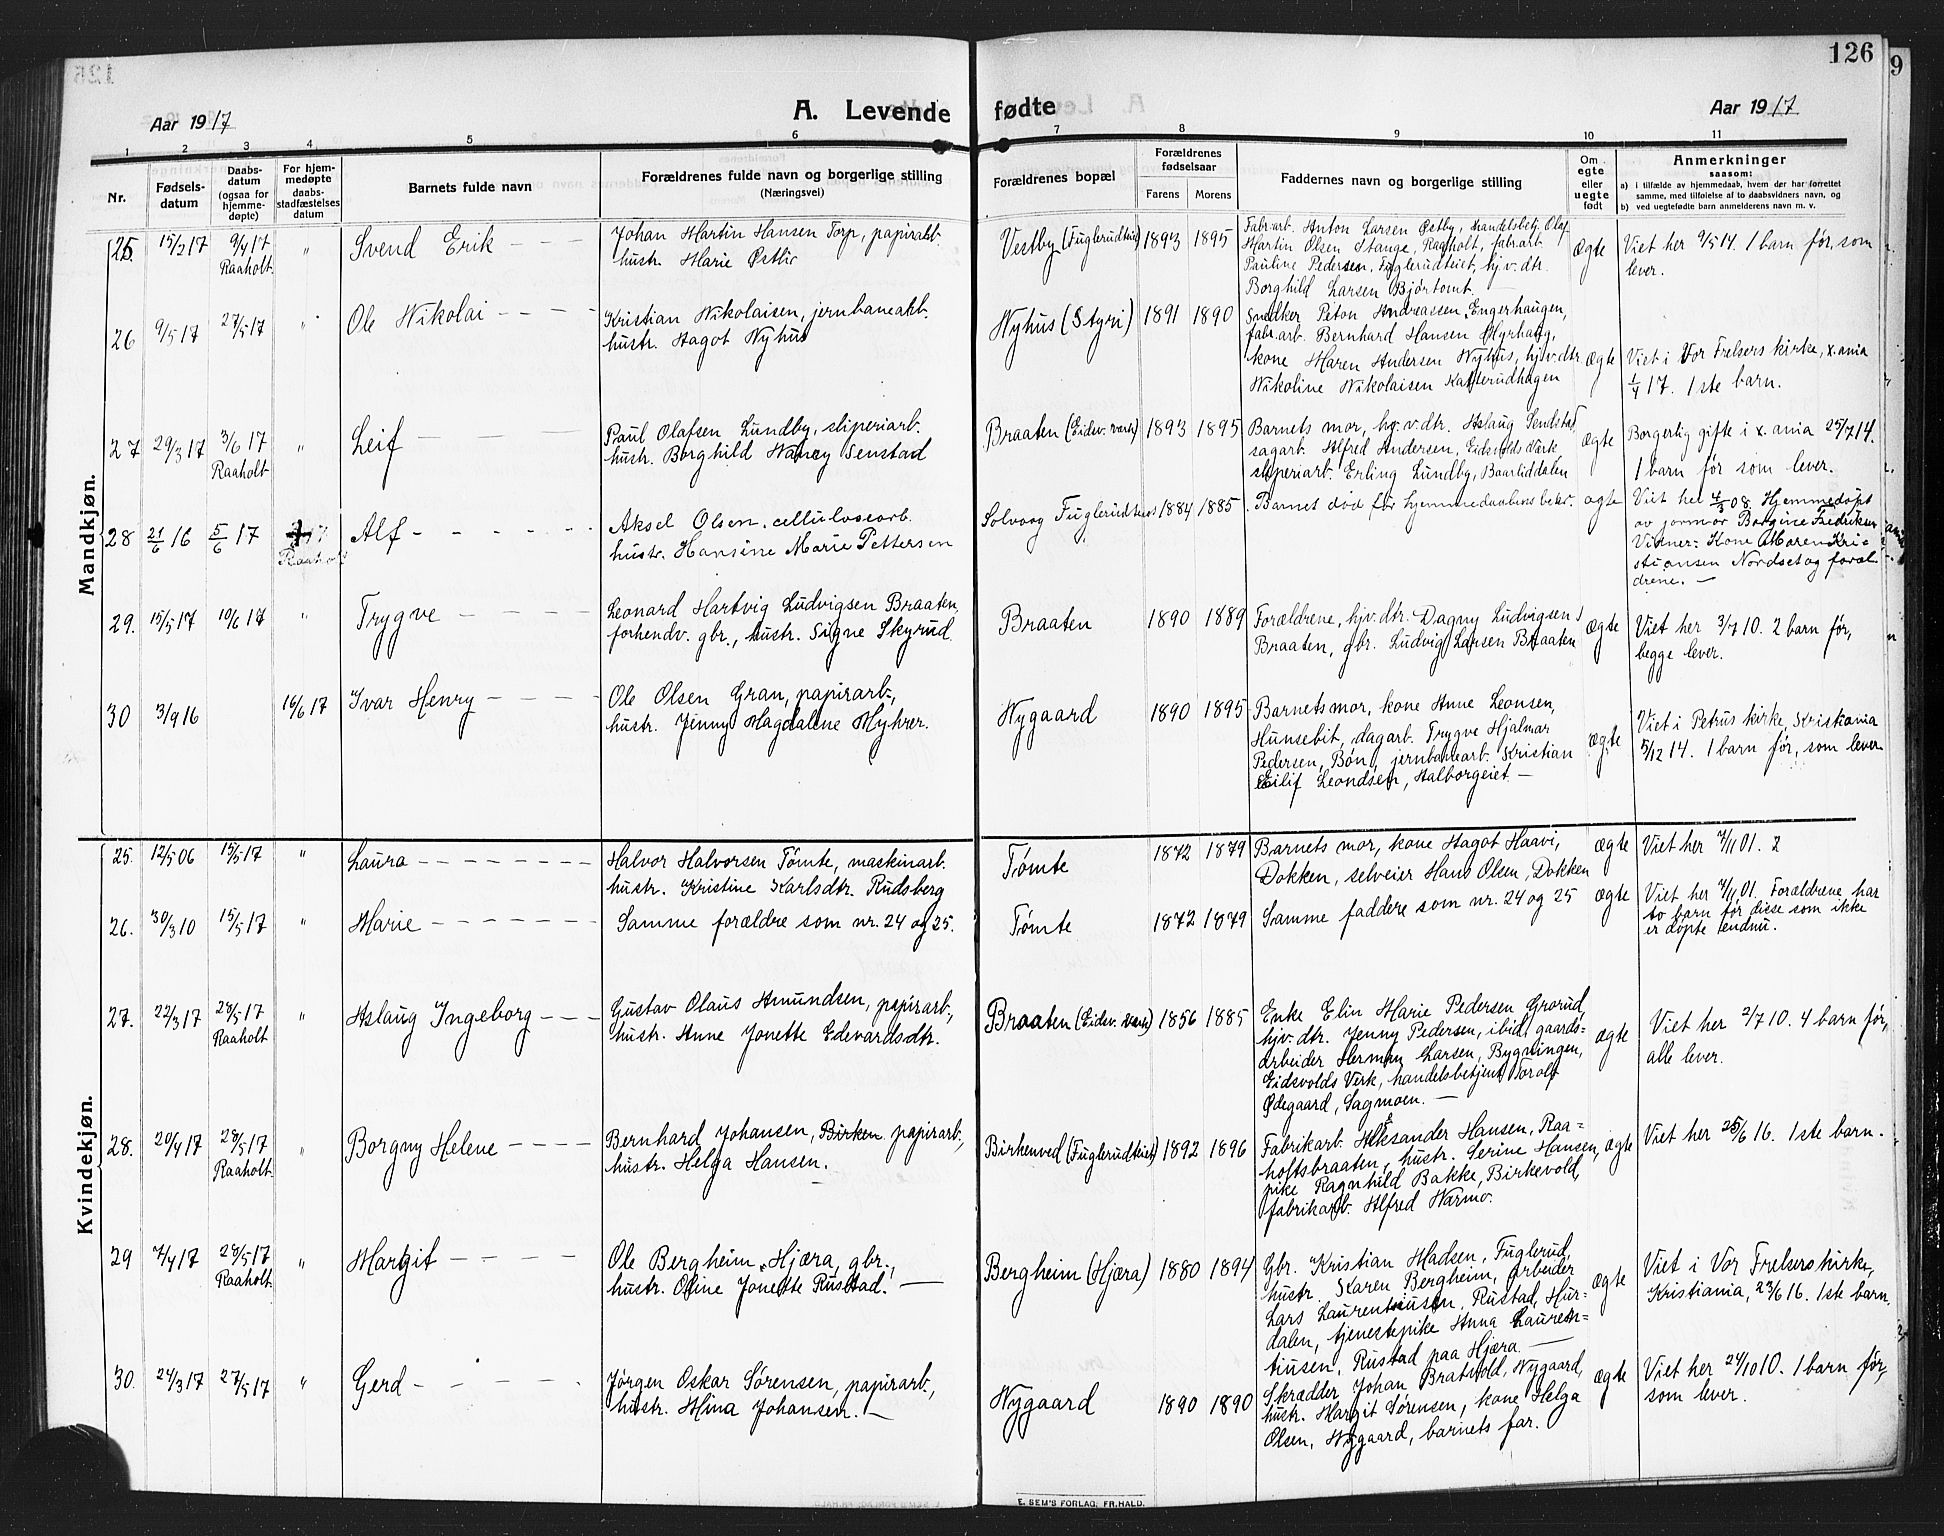 126
9
A. Levende fødte
Aar 1917
Aar 1917
1 2 3 4 5 6 7 8 9 10 11
Nr.
Fødsels-
datum
Daabs-
datum
(ogsaa for
hjemme-
døpte)
For hjem-
medøpte
daabs-
stadfæstelses
datum
Barnets fulde navn
Forældrenes fulde navn og borgerlige stilling
(Næringsvei)
Forældrenes bopæl
Forældrenes
fødselsaar
Farens Morens
Faddernes navn og borgerlige stilling
Om
egte
eller
uegte
født
Anmerkninger
saasom:
a) i tilfælde av hjemmedaab, hvem der har forrettet
samme, med tilføielse af to daabsvidners navn, og
b) ved uegtefødte barn anmelderens navn m. v.
Mandkjøn.
25. 15/2 17 9/4 17 Raaholt " Svend Erik
Johan Martin Hansen Torp, papirarb.
hustr. Marie Østlie
Vestby (Fuglerudteiet) 1893 1895
Fabr.arb. Anton Larsen Østby, handelsbetj. Olaf
Martin Olsen Stange, Raaholt, fabr.arb.
Pauline Pedersen, Fuglerudteiet, hj.v.dtr.
Borghild Larsen Bjørtomt
ægte
Viet her 9/5 14. 1 barn før, som
lever.
26 9/5 17 27/5 17 " Ole Nikolai
Kristian Nikolaisen, jernbanearb.
hustr. Hagot Nyhus
Nyhus (Styri) 1891 1890
Snedker Peton Andreassen, Engerhaugen,
fabr.arb. Bernhard Hansen Myrhaug,
kone Maren Andersen Nyhus, hj.v.dtr
Nikoline Nikolaisen Katterudhagen
ægte
Viet i Vor Frelsers kirke, x.ania
1/4 17. 1ste barn.
27 29/3 17 3/6 17 Raaholt " Leif
Paul Olafsen Lundby, sliperiarb.
hustr. Borghild Nancy Senstad
Braaten (Eidsv. værk) 1893 1895
Barnets mor, hj.v.dtr. Aslaug Sendstad,
sagarb. Alfred Andersen, Eidsvolds Værk
sliperiarb. Erling Lundby, Baarliddalen
ægte
Borgerlig gifte i x.ania 25/7 14.
1 barn før som lever.
28 21/6 16 5/6 17 Raaholt Alf
Aksel Olsen, cellulosearb.
hustr. Hansine Marie Pettersen
Solvaag Fuglerudteiet 1884 1885
Barnet død før hjemmedaabens bekr.
ægte
Viet her 4/5 08. Hjemmedøpt
av jormor Borgine Fredriksen
Vidner: Kone Maren Kri-
stiansen Nordset og foræl-
drene.
29. 15/5 17 10/6 17 " Trygve
Leonard Hartvig Ludvigsen Braaten,
forhenv. gbr., hustr. Signe Skyrud
Braaten 1890 1889
Forældrene, hjv.dtr. Dagny Ludvigsen
Braaten, gbr. Ludvig Larsen Braaten
ægte
Viet her 3/7 10. 2 barn før,
begge lever.
30 3/9 16 16/6 17 Ivar Henry
Ole Olsen Gran, papirarb.,
hustr. Jenny Magdalene Myhrer.
Nygaard 1890 1895
Barnets mor, kone Anne Leonsen,
Hunsebit, dagarb. Trygve Hjalmar
Pedersen, Bøn, jernbanearb. Kristian
Eilif Leondsen, Halborgeiet.
ægte
Viet i Petrus kirke, Kristiania
5/12 14. 1 barn før, som lever
Kvindekjøn.
25. 12/5 06 15/5 17 " Laura
Halvor Halvorsen Tømte, maskinarb.
hustr. Kristine Karlsdtr. Rudsberg
Tømte 1872 1879
Barnets mor, kone Hagot Haavi,
Dokken, selveier Hans Olsen, Dokken
ægte
Viet her 7/11 01. 2
26. 30/3 10 15/5 17 " Marie
Samme forældre som nr. 24 og 25.
Tømte 1872 1879
Samme faddere som nr. 24 og 25
ægte
Viet her 7/11 01. Forældrene har
to barn før disse som ikke
er døpte endnu.
27. 22/3 17 28/5 17 Raaholt " Aslaug Ingeborg
Gustav Olaus Amundsen, papirarb.,
hustr. Anne Jonette Edevardsdtr.
Braaten (Eidsv. Værk) 1856 1885
Enke Elin Marie Pedersen Grorud,
hjv. dtr. Jenny Pedersen, ibid, gaards-
arbeider Herman Larsen, Bygningen,
Eidsvolds Verk, handelsbetjent Torolf
Ødegaard, Sagmoen.
ægte
Viet her 2/7 10. 4 barn før,
alle lever.
28. 20/4 17 28/5 17 Raaholt " Borgny Helene
Bernhard Johansen, Birken papirarb.,
hustr. Helga Hansen.
Birkenved (Fuglerudteiet) 1892 1896
Fabrikarb. Aleksander Hansen, Raa-
holtsbraaten, hustr. Serine Hansen,
pike Ragnhild Bakke, Birkevold,
fabrikarb. Alfred Narmo.
ægte
Viet her 25/6 16. 1ste barn.
29 7/4 17 28/5 17 Raaholt " Margit
Ole Bergheim, Hjæra, gbr.,
hustr. Oline Jonette Rustad.
Bergheim (Hjæra) 1880 1894
Gbr. Kristian Madsen, Fuglerud,
hustr. Karen Bergheim, arbeider
Lars Laurentiusen, Rustad, Hur-
dalen, tjenestepike Anna Lauren-
tiusen, Rustad paa Hjæra.
ægte
Viet i Vor Frelsers kirke,
Kristiania, 23/6 16. 1ste barn.
30. 24/3 17 27/5 17 " Gerd
Jørgen Oskar Sørensen, papirarb.,
hustr. Mina Johansen.
Nygaard 1890 1890
Skrædder Johan Bratvold, Nygaard,
hustr. Margit Sørensen, kone Helga
Olsen, Nygaard, barnets far.
ægte
Viet her 24/10 10. 1 barn før,
som lever.
E. SEM'S FORLAG, FR.HALD.